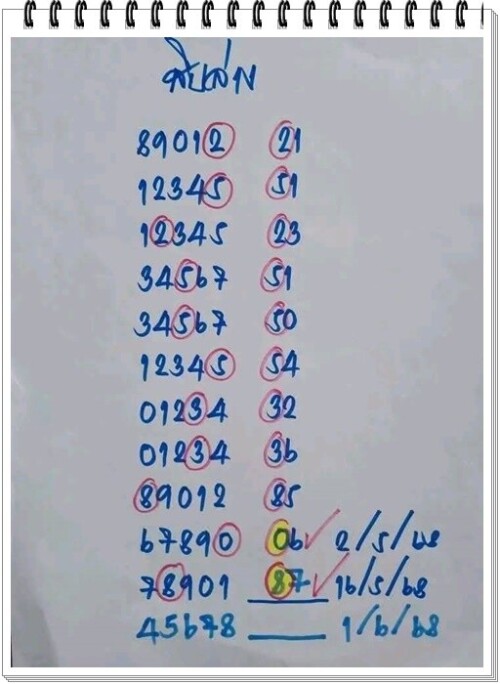 สิบล่าง
89012 21
12345 51
12345 23
34567 51
34567 50
12345 54
01234 32
01234 36
89012 85
67890 06 ✓ 2/5/68
78901 87 ✓ 16/5/68
45678 ___ 1/6/68